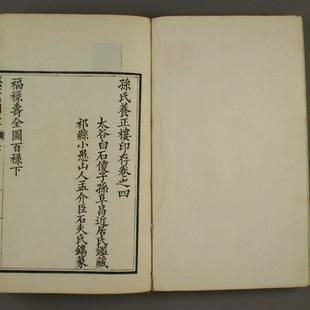 孫氏養正樓印存卷之四
太谷白石僊子孫阜昌近居氏鑑藏
祁縣小愚山人孟介臣石夫氏鐫篆
福祿壽全圖百祿下